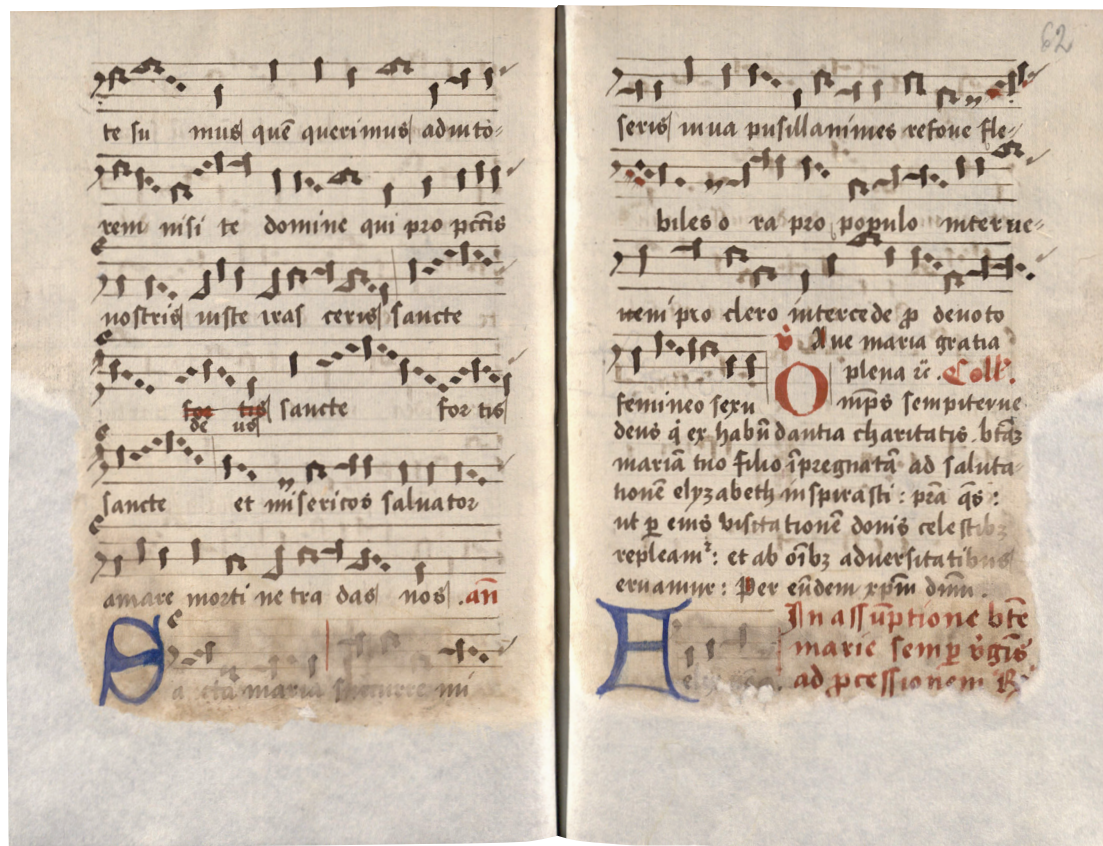 te su mus quē querimus adiuto-
rem nisi te domine qui pro pctīs
nostris iuste iras ceris sancte
for tis sancte for tis
de us
sancte et misericos saluator
amare morti ne tra das nos . añ
Sa cta maria succurre mi
62
seris iuua pusillanimes refoue fle-
biles o ra pro populo interue-
neni pro clero intercede p deuoto
v̇ Aue maria gratia
plena rc̄ . Coll.
femineo sexu Omps̄ sempiterne
deus q ex habūdantia charitatis btāʒ
mariā tuo filio īpregnatā ad saluta-
tionē elyzabeth inspirasti : prā qs̄ :
ut p eius visitationē donis celestibʒ
repleamr : et ab oībʒ aduersitatibus
eruamur : Per eūdem xpm̄ dnm̄ .
In assūptione btē
marie semp v̇gīs
ad pcessionem R